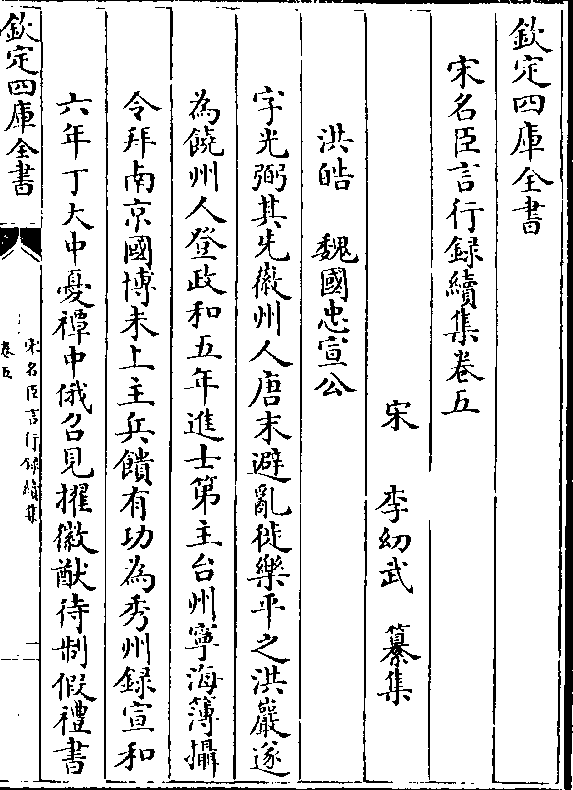 欽定四庫全書
宋名臣言行録續集卷五
宋 李幼武 纂集
洪皓 魏國忠宣公
字光弼其先徽州人唐末避亂徙樂平之洪巖遂
為饒州人登政和五年進士第主台州寧海簿攝
令拜南京國博未上主兵饋有功為秀州録宣和
六年丁大中憂禫中俄召見擢徽猷待制假禮書
欽定四庫全書
宋名臣言行録續集
卷五
一